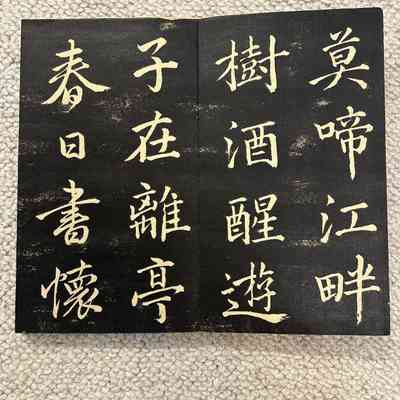 莫啼江畔
樹酒醒遊
子在離亭
春日書懷